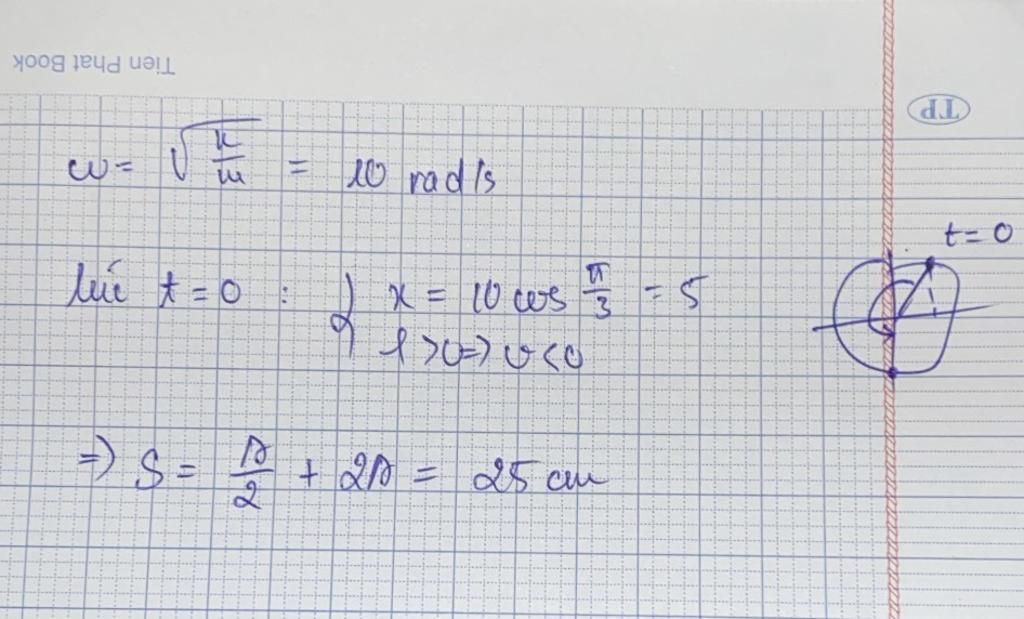 Tien Phat Book
TP
ω = √(k/m) = 10 rad/s
t = 0
lúc t = 0 : { x = 10 cos π/3 = 5
φ > 0 => v < 0
=> S = A/2 + 2A = 25 cm